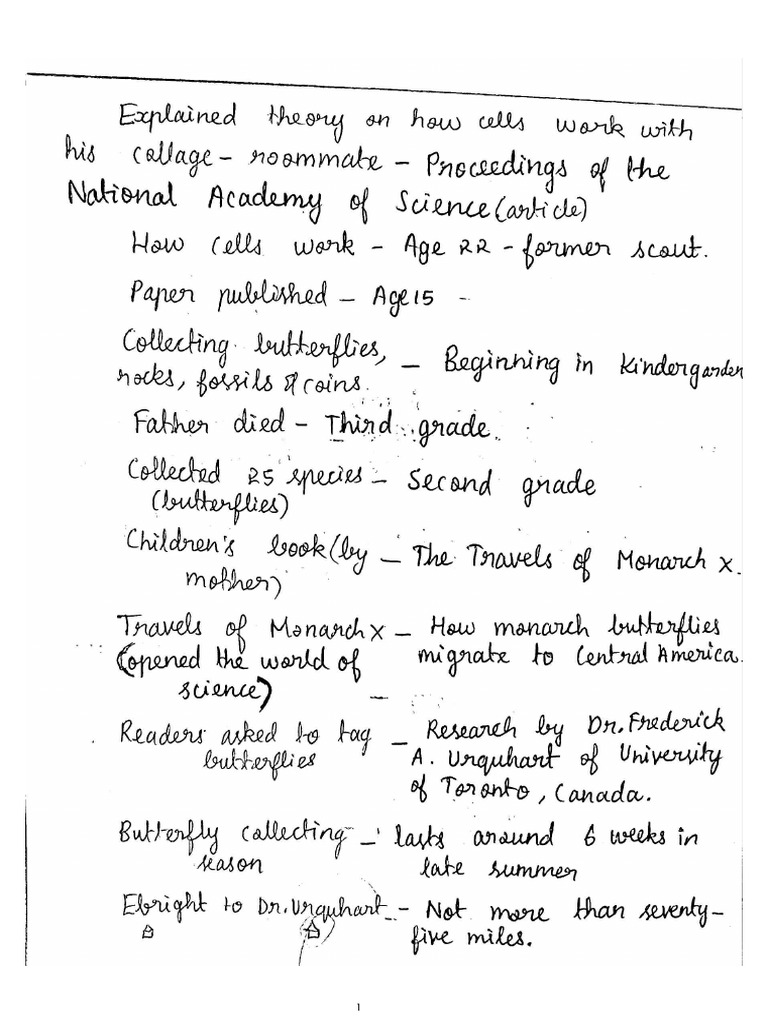 Explained theory on how cells work with
his collage - roommate - Proceedings of the
National Academy of Science (article)
How cells work - Age 22 - former scout.
Paper published - Age 15 -
Collecting butterflies, - Beginning in Kindergarden
rocks, fossils & coins.
Father died - Third grade.
Collected 25 species - Second grade
(butterflies)
Children's book (by - The Travels of Monarch X.
mother)
Travels of Monarch X - How monarch butterflies
(opened the world of migrate to Central America.
science) -
Readers asked to tag - Research by Dr. Frederick
butterflies A. Urquhart of University
of Toronto, Canada.
Butterfly collecting - lasts around 6 weeks in
season late summer
Ebright to Dr. Urquhart - Not more than seventy-
five miles.
1